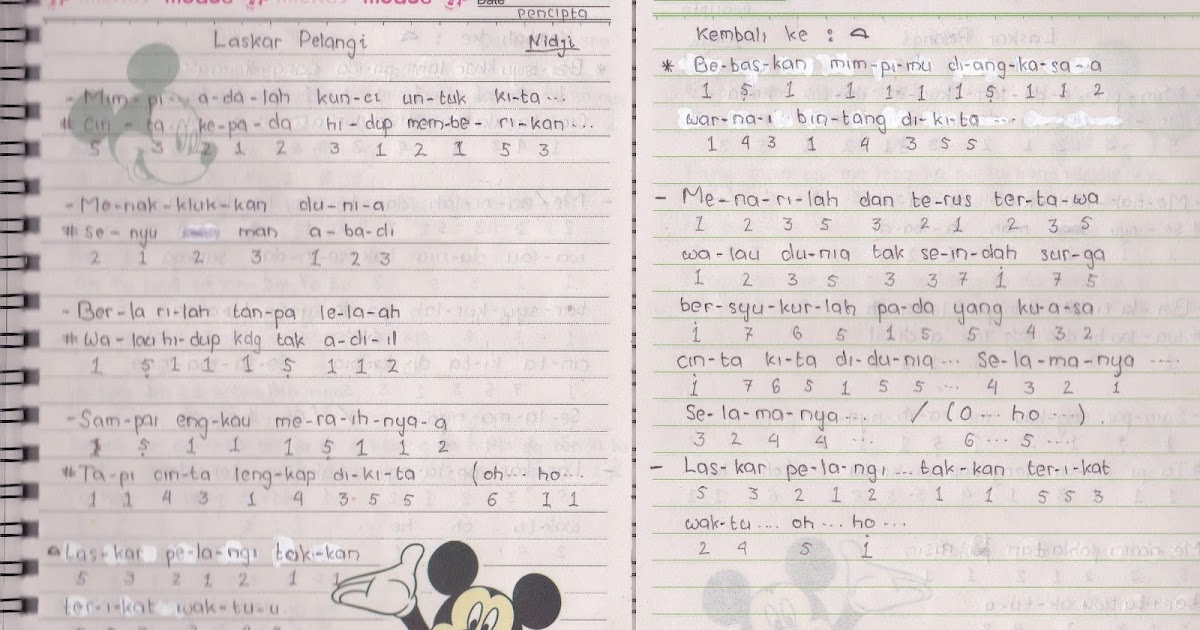 Date
Pencipta
Laskar Pelangi Nidji
- Mim - pi - a-da-lah kun-ci un-tuk ki-ta...
# Cin - ta ke-pa-da hi-dup mem-be-ri-kan...
5 3 2 1 2 3 1 2 1 5 3
- Me-nak-kluk-kan du-ni-a
# Se-nyu man a-ba-di
2 1 2 3 1 2 3
- Ber-la ri-lah tan-pa le-la-ah
# Wa-lau hi-dup kdg tak a-di-il
1 5̣ 1 1 1 5̣ 1 1 2
- Sam-pai eng-kau me-ra-ih-nya-a
1 5̣ 1 1 1 5̣ 1 1 2
# Ta-pi cin-ta leng-kap di-ki-ta (oh... ho...
1 1 4 3 1 4 3 5 5 6 1 1
Las-kar pe-la-ngi tak-kan
5 3 2 1 2 1 1
ter-i-kat wak-tu-u
Kembali ke :
* Be-bas-kan mim-pi-mu di-ang-ka-sa-a
1 5̣ 1 1 1 1 1 5̣ 1 1 2
war-na-i bin-tang di-ki-ta ...
1 4 3 1 4 3 5 5
- Me-na-ri-lah dan te-rus ter-ta-wa
1 2 3 5 3 2 1 2 3 5
wa-lau du-nia tak se-in-dah sur-ga
1 2 3 5 3 3 7 i 7 5
ber-syu-kur-lah pa-da yang ku-a-sa
i 7 6 5 1 5 5 4 3 2
cin-ta ki-ta di-du-nia ... se-la-ma-nya ....
i 7 6 5 1 5 5 ... 4 3 2 1
Se-la-ma-nya... / (O... ho ...).
3 2 4 4 ... 6 ... 5 ...
- Las-kar pe-la-ngi ... tak-kan ter-i-kat
5 3 2 1 2 1 1 5 5 3
wak-tu .... oh ... ho ...
2 4 5 i